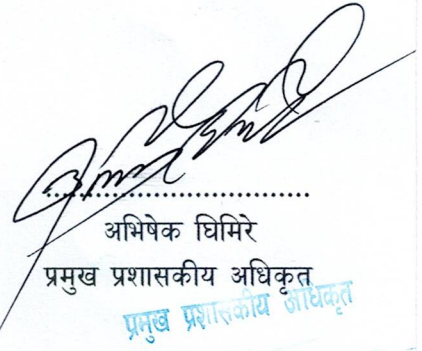 अभिषेक घिमिरे
प्रमुख प्रशासकीय अधिकृत
प्रमुख प्रशासकीय अधिकृत